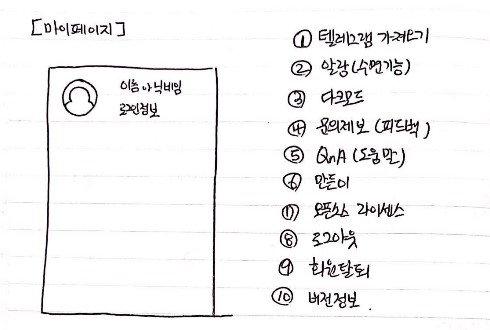 [마이페이지]
이름 or 닉네임
로그인정보
① 텔레그램 가져오기
② 알람(수면기능)
③ 다크모드
④ 문의제보(피드백)
⑤ QnA(도움말)
⑥ 만든이
⑦ 오픈소스 라이센스
⑧ 로그아웃
⑨ 회원탈퇴
⑩ 버전정보